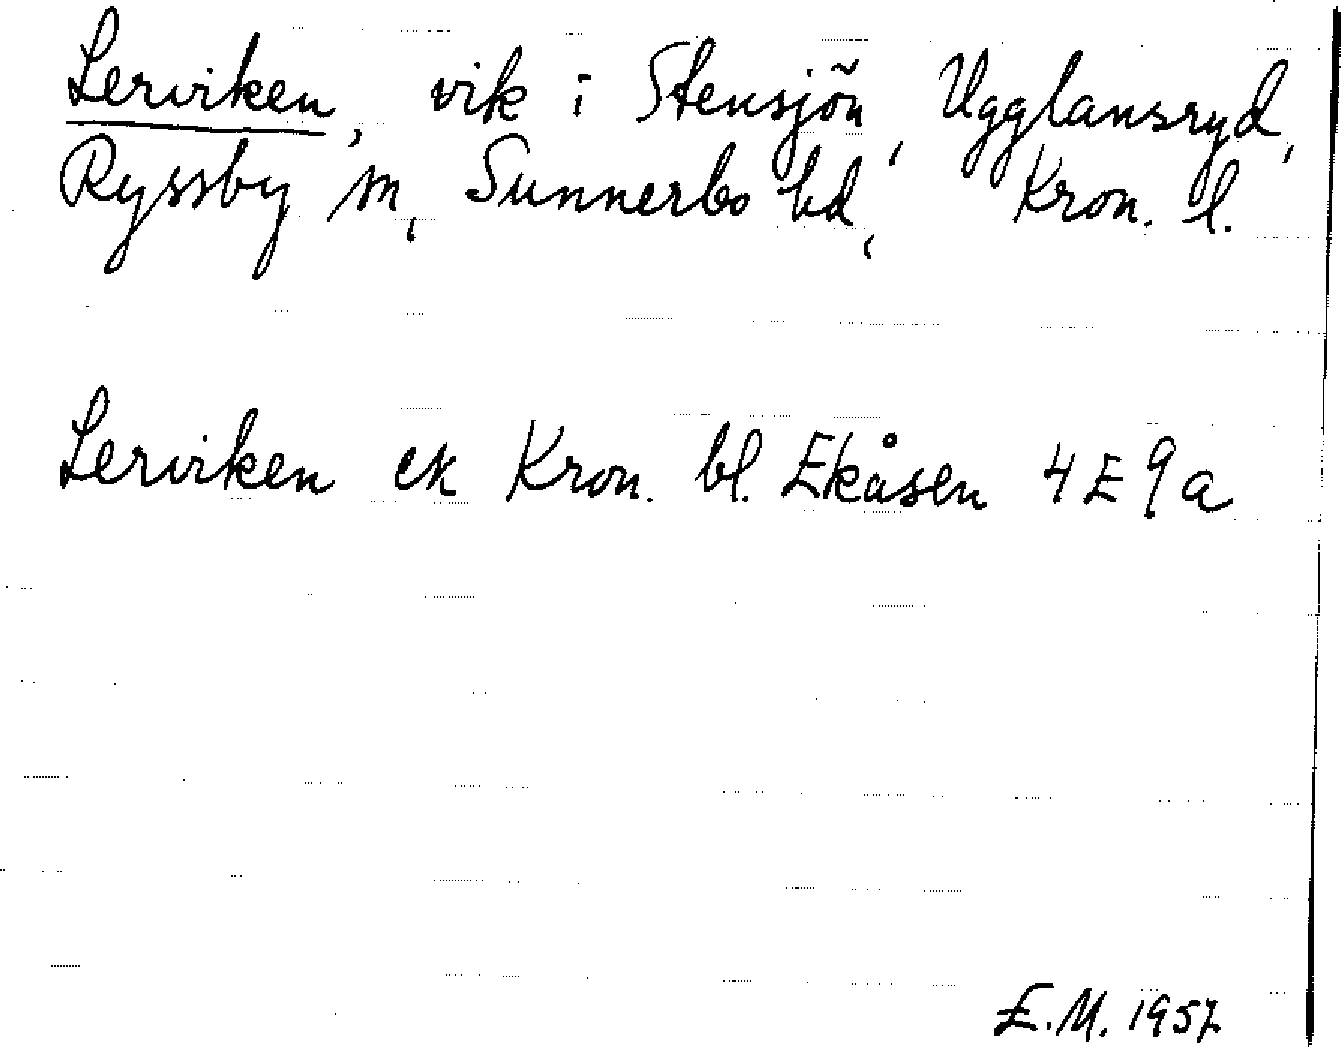 Lerviken, vik i Stensjön, Ugglansryd,
Ryssby sn, Sunnerbo hd, Kron. l.
Lerviken ek Kron. bl. Ekåsen 4 E 9 a
E.M. 1957